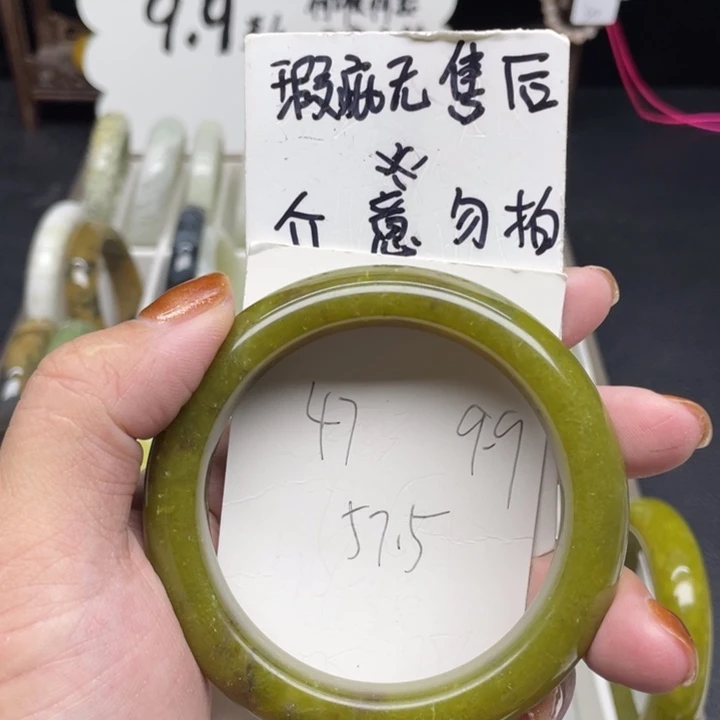 9.9
瑕疵无售后
※
介意勿拍
47 9.9
57.5